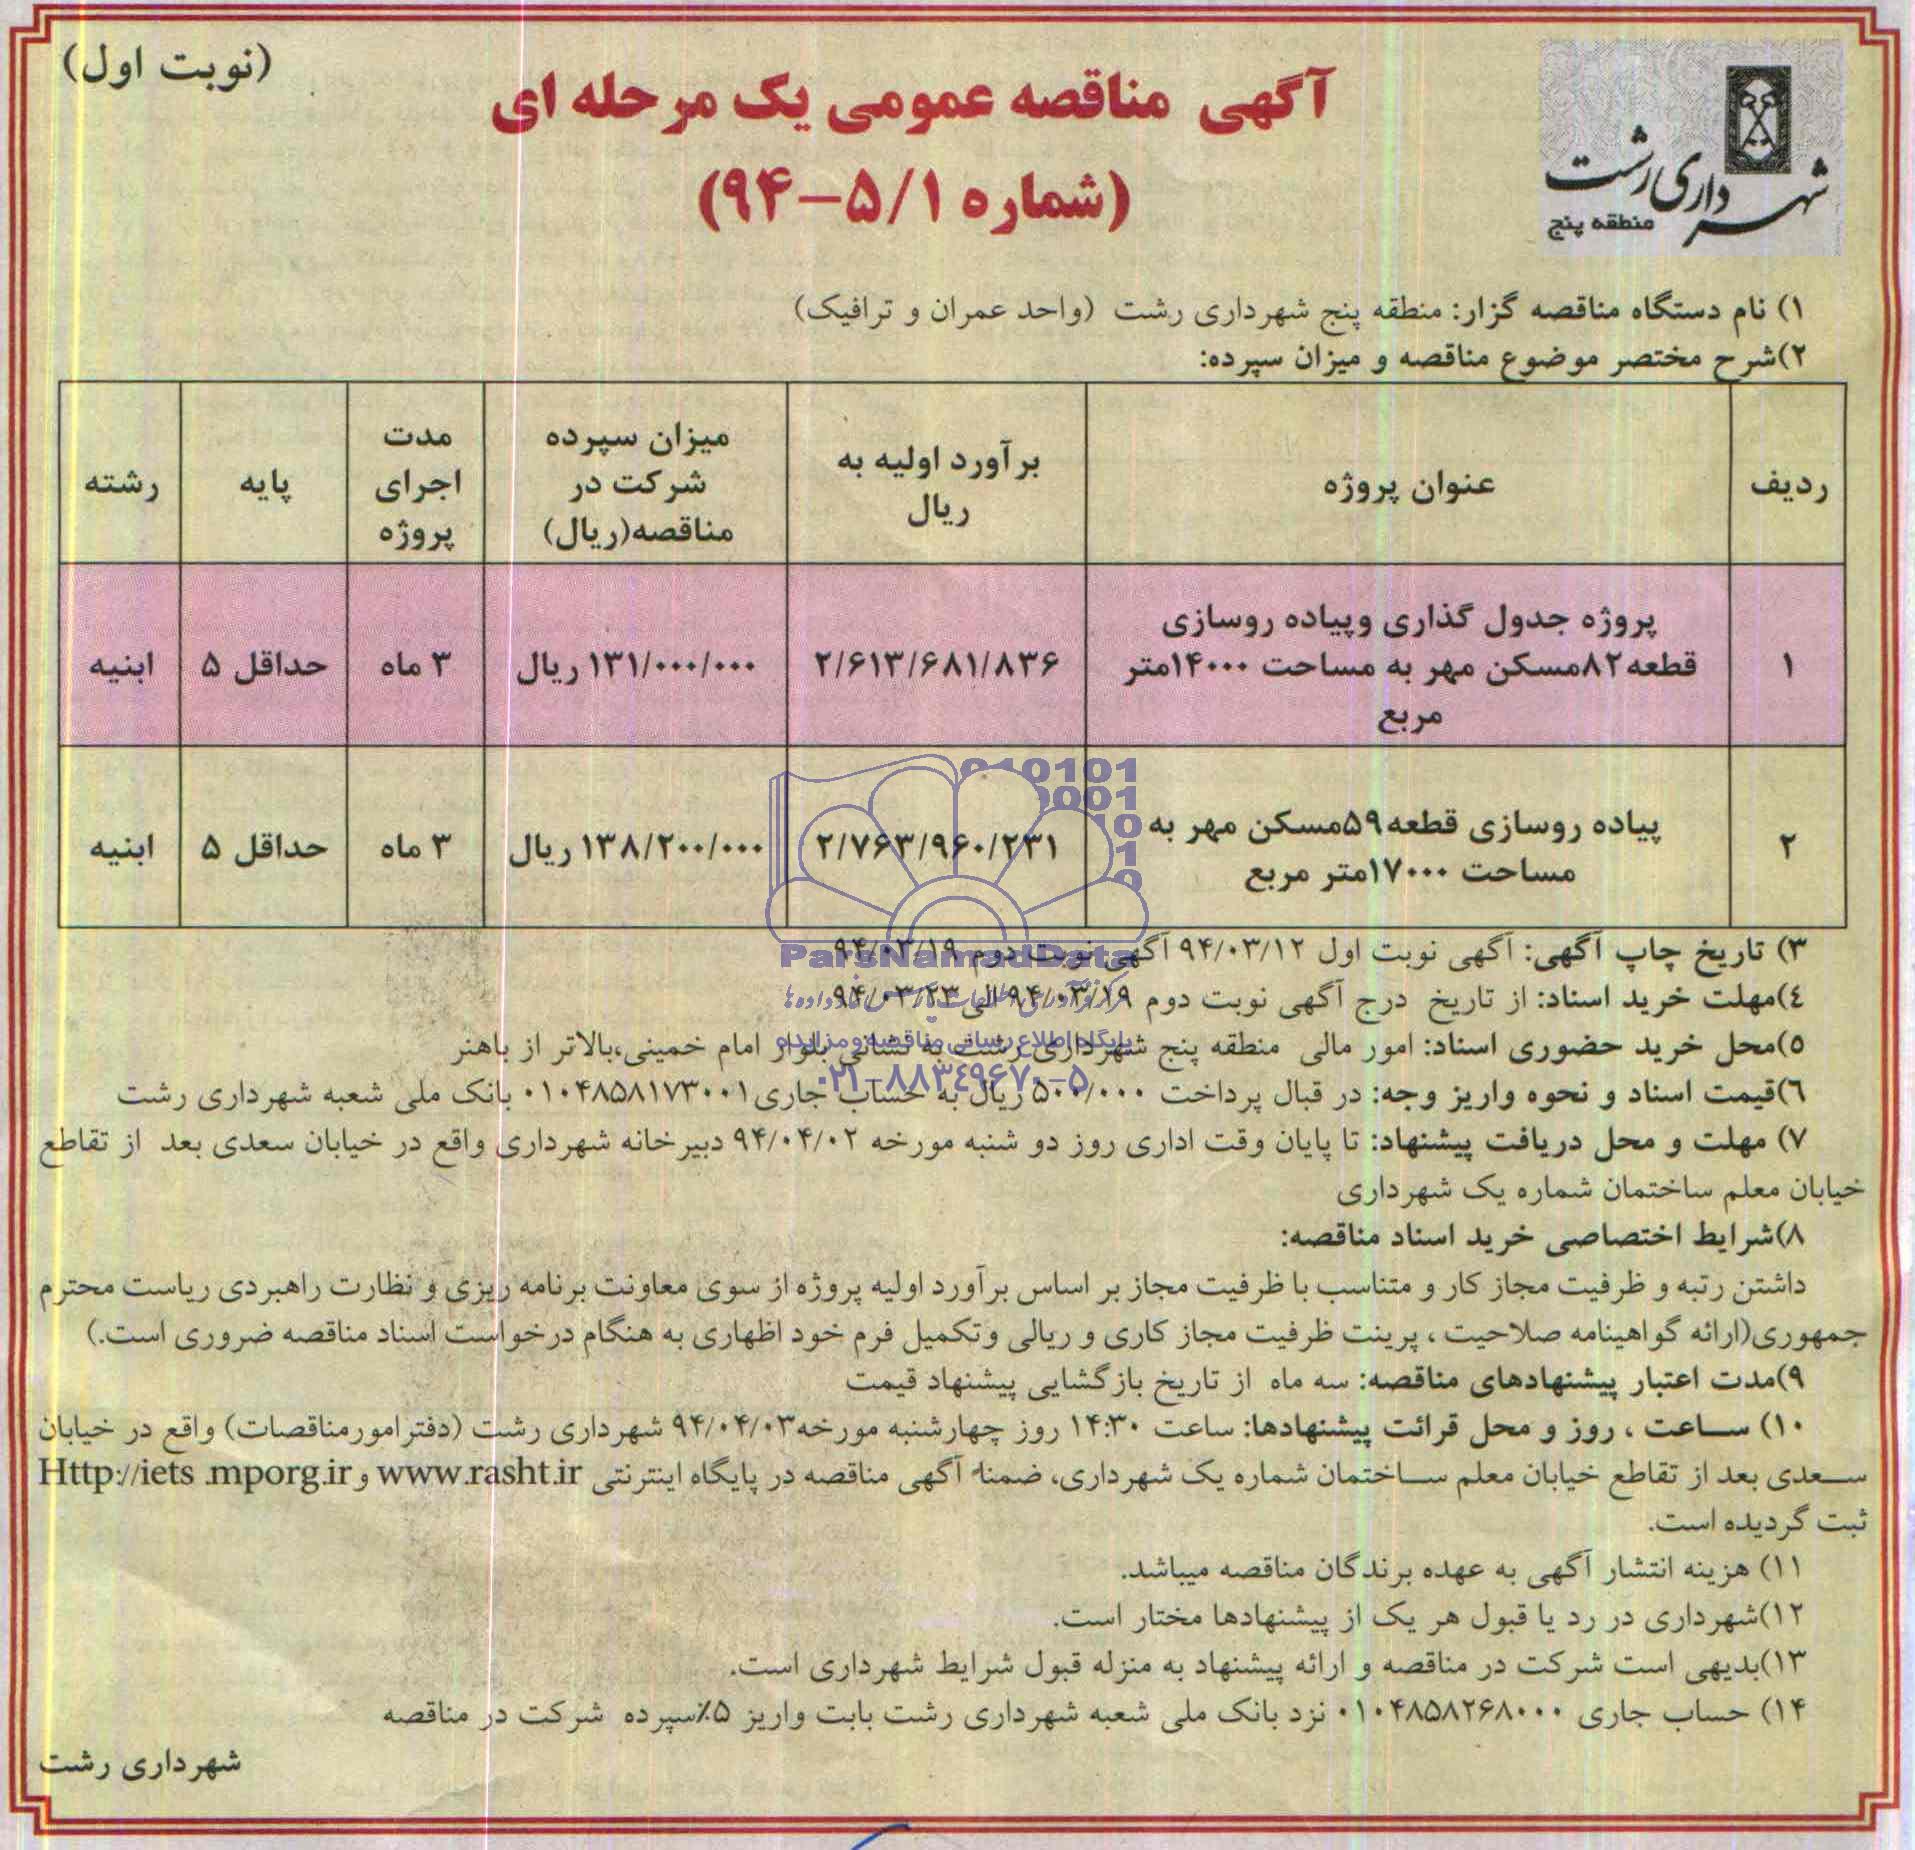 (نوبت اول)
آگهی مناقصه عمومی یک مرحله ای
(شماره ۵/۱-۹۴)
شهرداری رشت
منطقه پنج
۱) نام دستگاه مناقصه گزار: منطقه پنج شهرداری رشت (واحد عمران و ترافیک)
۲)شرح مختصر موضوع مناقصه و میزان سپرده:
ردیف | عنوان پروژه | برآورد اولیه به ریال | میزان سپرده شرکت در مناقصه(ریال) | مدت اجرای پروژه | پایه | رشته
۱ | پروژه جدول گذاری وپیاده روسازی قطعه۸۲مسکن مهر به مساحت ۱۴۰۰۰متر مربع | ۲/۶۱۳/۶۸۱/۸۳۶ | ۱۳۱/۰۰۰/۰۰۰ ریال | ۳ ماه | حداقل ۵ | ابنیه
۲ | پیاده روسازی قطعه۵۹مسکن مهر به مساحت ۱۷۰۰۰متر مربع | ۲/۷۶۳/۹۶۰/۲۳۱ | ۱۳۸/۲۰۰/۰۰۰ ریال | ۳ ماه | حداقل ۵ | ابنیه
۳) تاریخ چاپ آگهی: آگهی نوبت اول ۹۴/۰۳/۱۲ آگهی نوبت دوم ۹۴/۰۳/۱۹
۴)مهلت خرید اسناد: از تاریخ درج آگهی نوبت دوم ۹۴/۰۳/۱۹ الی ۹۴/۰۳/۲۳
۵)محل خرید حضوری اسناد: امور مالی منطقه پنج شهرداری رشت به نشانی بلوار امام خمینی،بالاتر از باهنر
۶)قیمت اسناد و نحوه واریز وجه: در قبال پرداخت ۵۰۰/۰۰۰ ریال به حساب جاری۰۱۰۴۸۵۸۱۷۳۰۰۱ بانک ملی شعبه شهرداری رشت
۷) مهلت و محل دریافت پیشنهاد: تا پایان وقت اداری روز دو شنبه مورخه ۹۴/۰۴/۰۲ دبیرخانه شهرداری واقع در خیابان سعدی بعد از تقاطع
خیابان معلم ساختمان شماره یک شهرداری
۸)شرایط اختصاصی خرید اسناد مناقصه:
داشتن رتبه و ظرفیت مجاز کار و متناسب با ظرفیت مجاز بر اساس برآورد اولیه پروژه از سوی معاونت برنامه ریزی و نظارت راهبردی ریاست محترم
جمهوری(ارائه گواهینامه صلاحیت ، پرینت ظرفیت مجاز کاری و ریالی وتکمیل فرم خود اظهاری به هنگام درخواست اسناد مناقصه ضروری است.)
۹)مدت اعتبار پیشنهادهای مناقصه: سه ماه از تاریخ بازگشایی پیشنهاد قیمت
۱۰) ساعت ، روز و محل قرائت پیشنهادها: ساعت ۱۴:۳۰ روز چهارشنبه مورخه۹۴/۰۴/۰۳ شهرداری رشت (دفترامورمناقصات) واقع در خیابان
سعدی بعد از تقاطع خیابان معلم ساختمان شماره یک شهرداری، ضمنا" آگهی مناقصه در پایگاه اینترنتی www.rasht.ir و Http://iets .mporg.ir
ثبت گردیده است.
۱۱) هزینه انتشار آگهی به عهده برندگان مناقصه میباشد.
۱۲)شهرداری در رد یا قبول هر یک از پیشنهادها مختار است.
۱۳)بدیهی است شرکت در مناقصه و ارائه پیشنهاد به منزله قبول شرایط شهرداری است.
۱۴) حساب جاری ۰۱۰۴۸۵۸۲۶۸۰۰۰ نزد بانک ملی شعبه شهرداری رشت بابت واریز ۵٪سپرده شرکت در مناقصه
شهرداری رشت
ParsNamadData
پایگاه اطلاع رسانی مناقصه و مزایده
۰۲۱-۸۸۳۴۹۶۷۰-۵